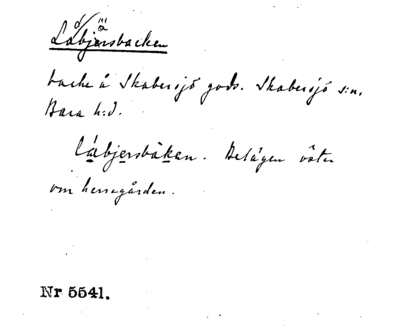 Ladbjersbacken
backe å Skabersjö gods. Skabersjö s:n,
Bara h:d.
lábjersbákan. Belägen väster
om herregården.
Nr 5541.